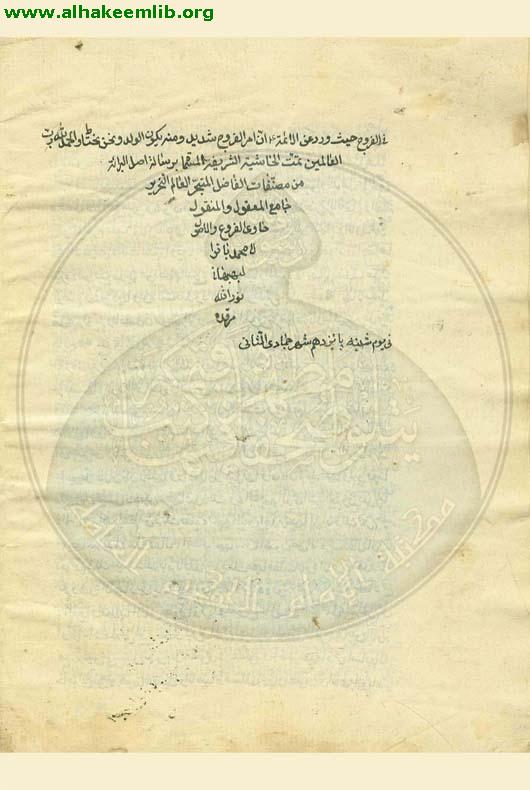 www.alhakeemlib.org
في الفروج حيث ورد عن الائمة ع ان امر الفروج شديد ومنه يكون الولد ونحن نحتاط والحمد لله رب
العالمين تمت الحاشية الشريفة المسماة برسالة اصل البرائة
من مصنفات الفاضل المتبحر العالم النحرير
جامع المعقول والمنقول
حاوي الفروع والاصول
محمد باقر
البهبهاني
نور الله
مرقده
في يوم شنبه پانزدهم شهر جمادى الثاني
مكتبة الإمام الحكيم العامة